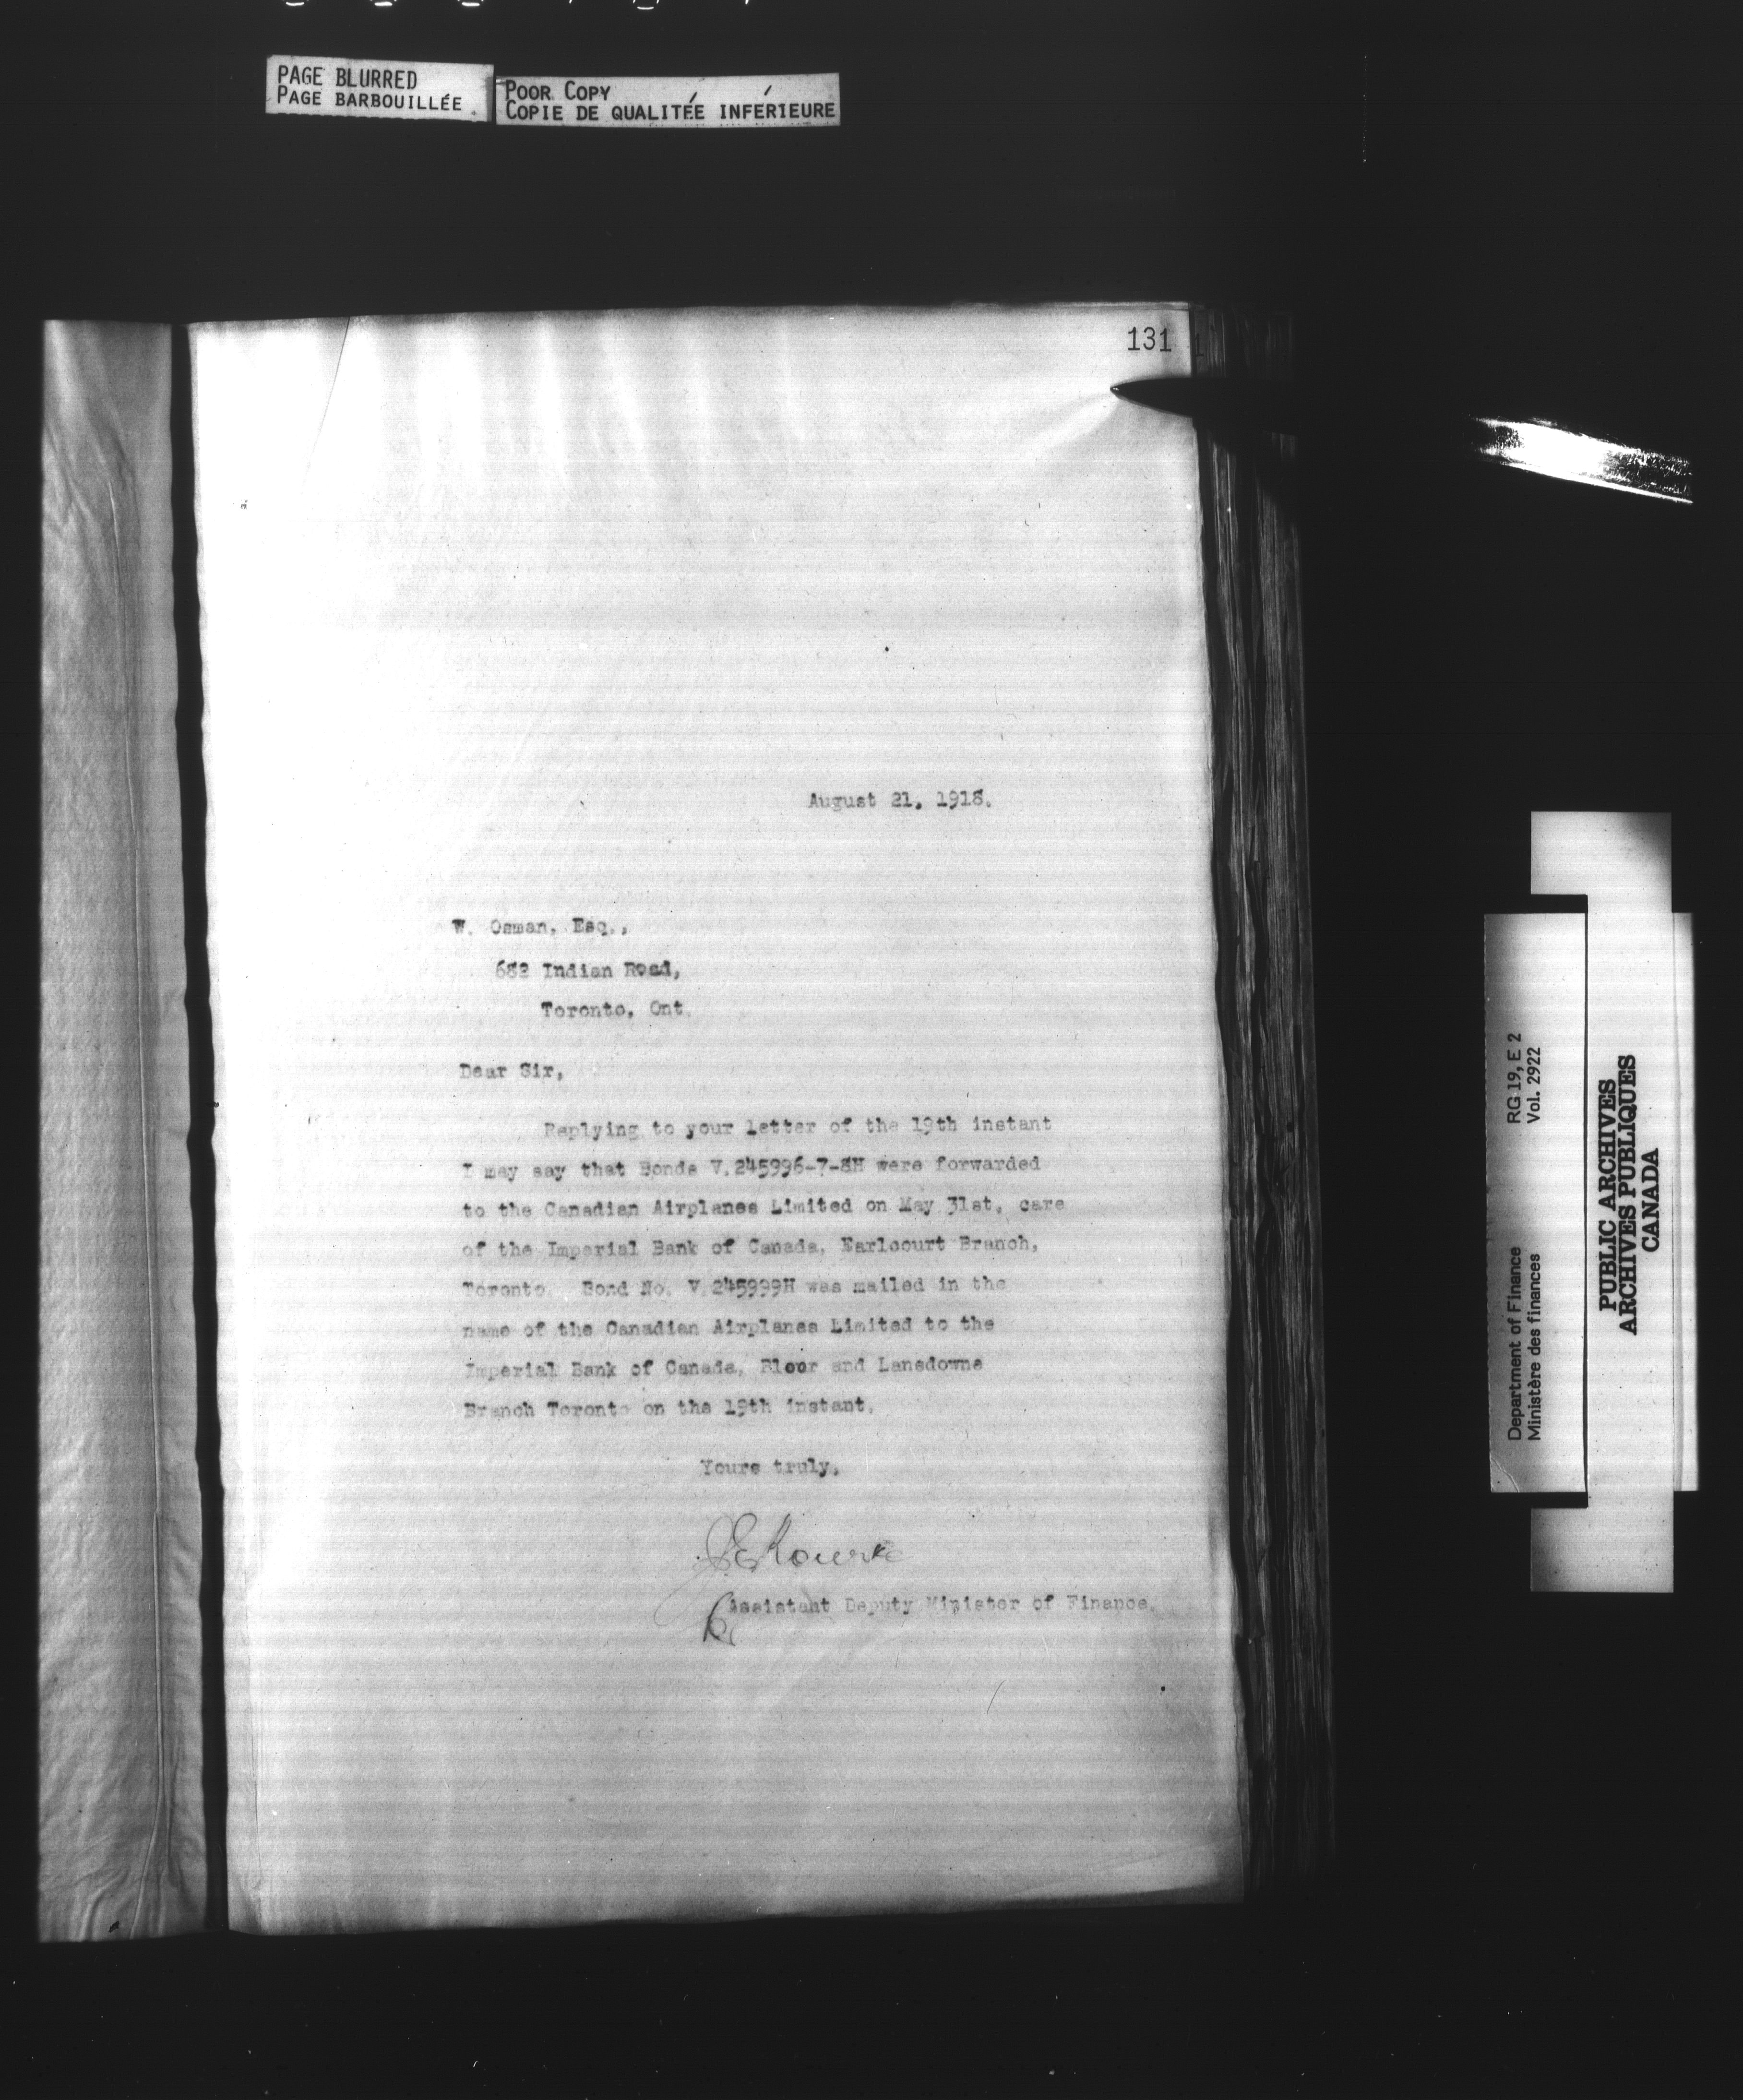 PAGE BLURRED
PAGE BARBOUILLÉE
POOR COPY
COPIE DE QUALITÉE INFÉRIEURE
131
August 21, 1918.
W. Osman, Esq.,
682 Indian Road,
Toronto, Ont.
Dear Sir,
Replying to your letter of the 19th instant
I may say that Bonds V.245996-7-8H were forwarded
to the Canadian Airplanes Limited on May 31st, care
of the Imperial Bank of Canada, Earlcourt Branch,
Toronto. Bond No. V.245999H was mailed in the
name of the Canadian Airplanes Limited to the
Imperial Bank of Canada, Bloor and Lansdowne
Branch Toronto on the 19th instant.
Yours truly,
Assistant Deputy Minister of Finance.
Department of Finance RG 19, E 2
Ministère des finances Vol. 2922
PUBLIC ARCHIVES
ARCHIVES PUBLIQUES
CANADA